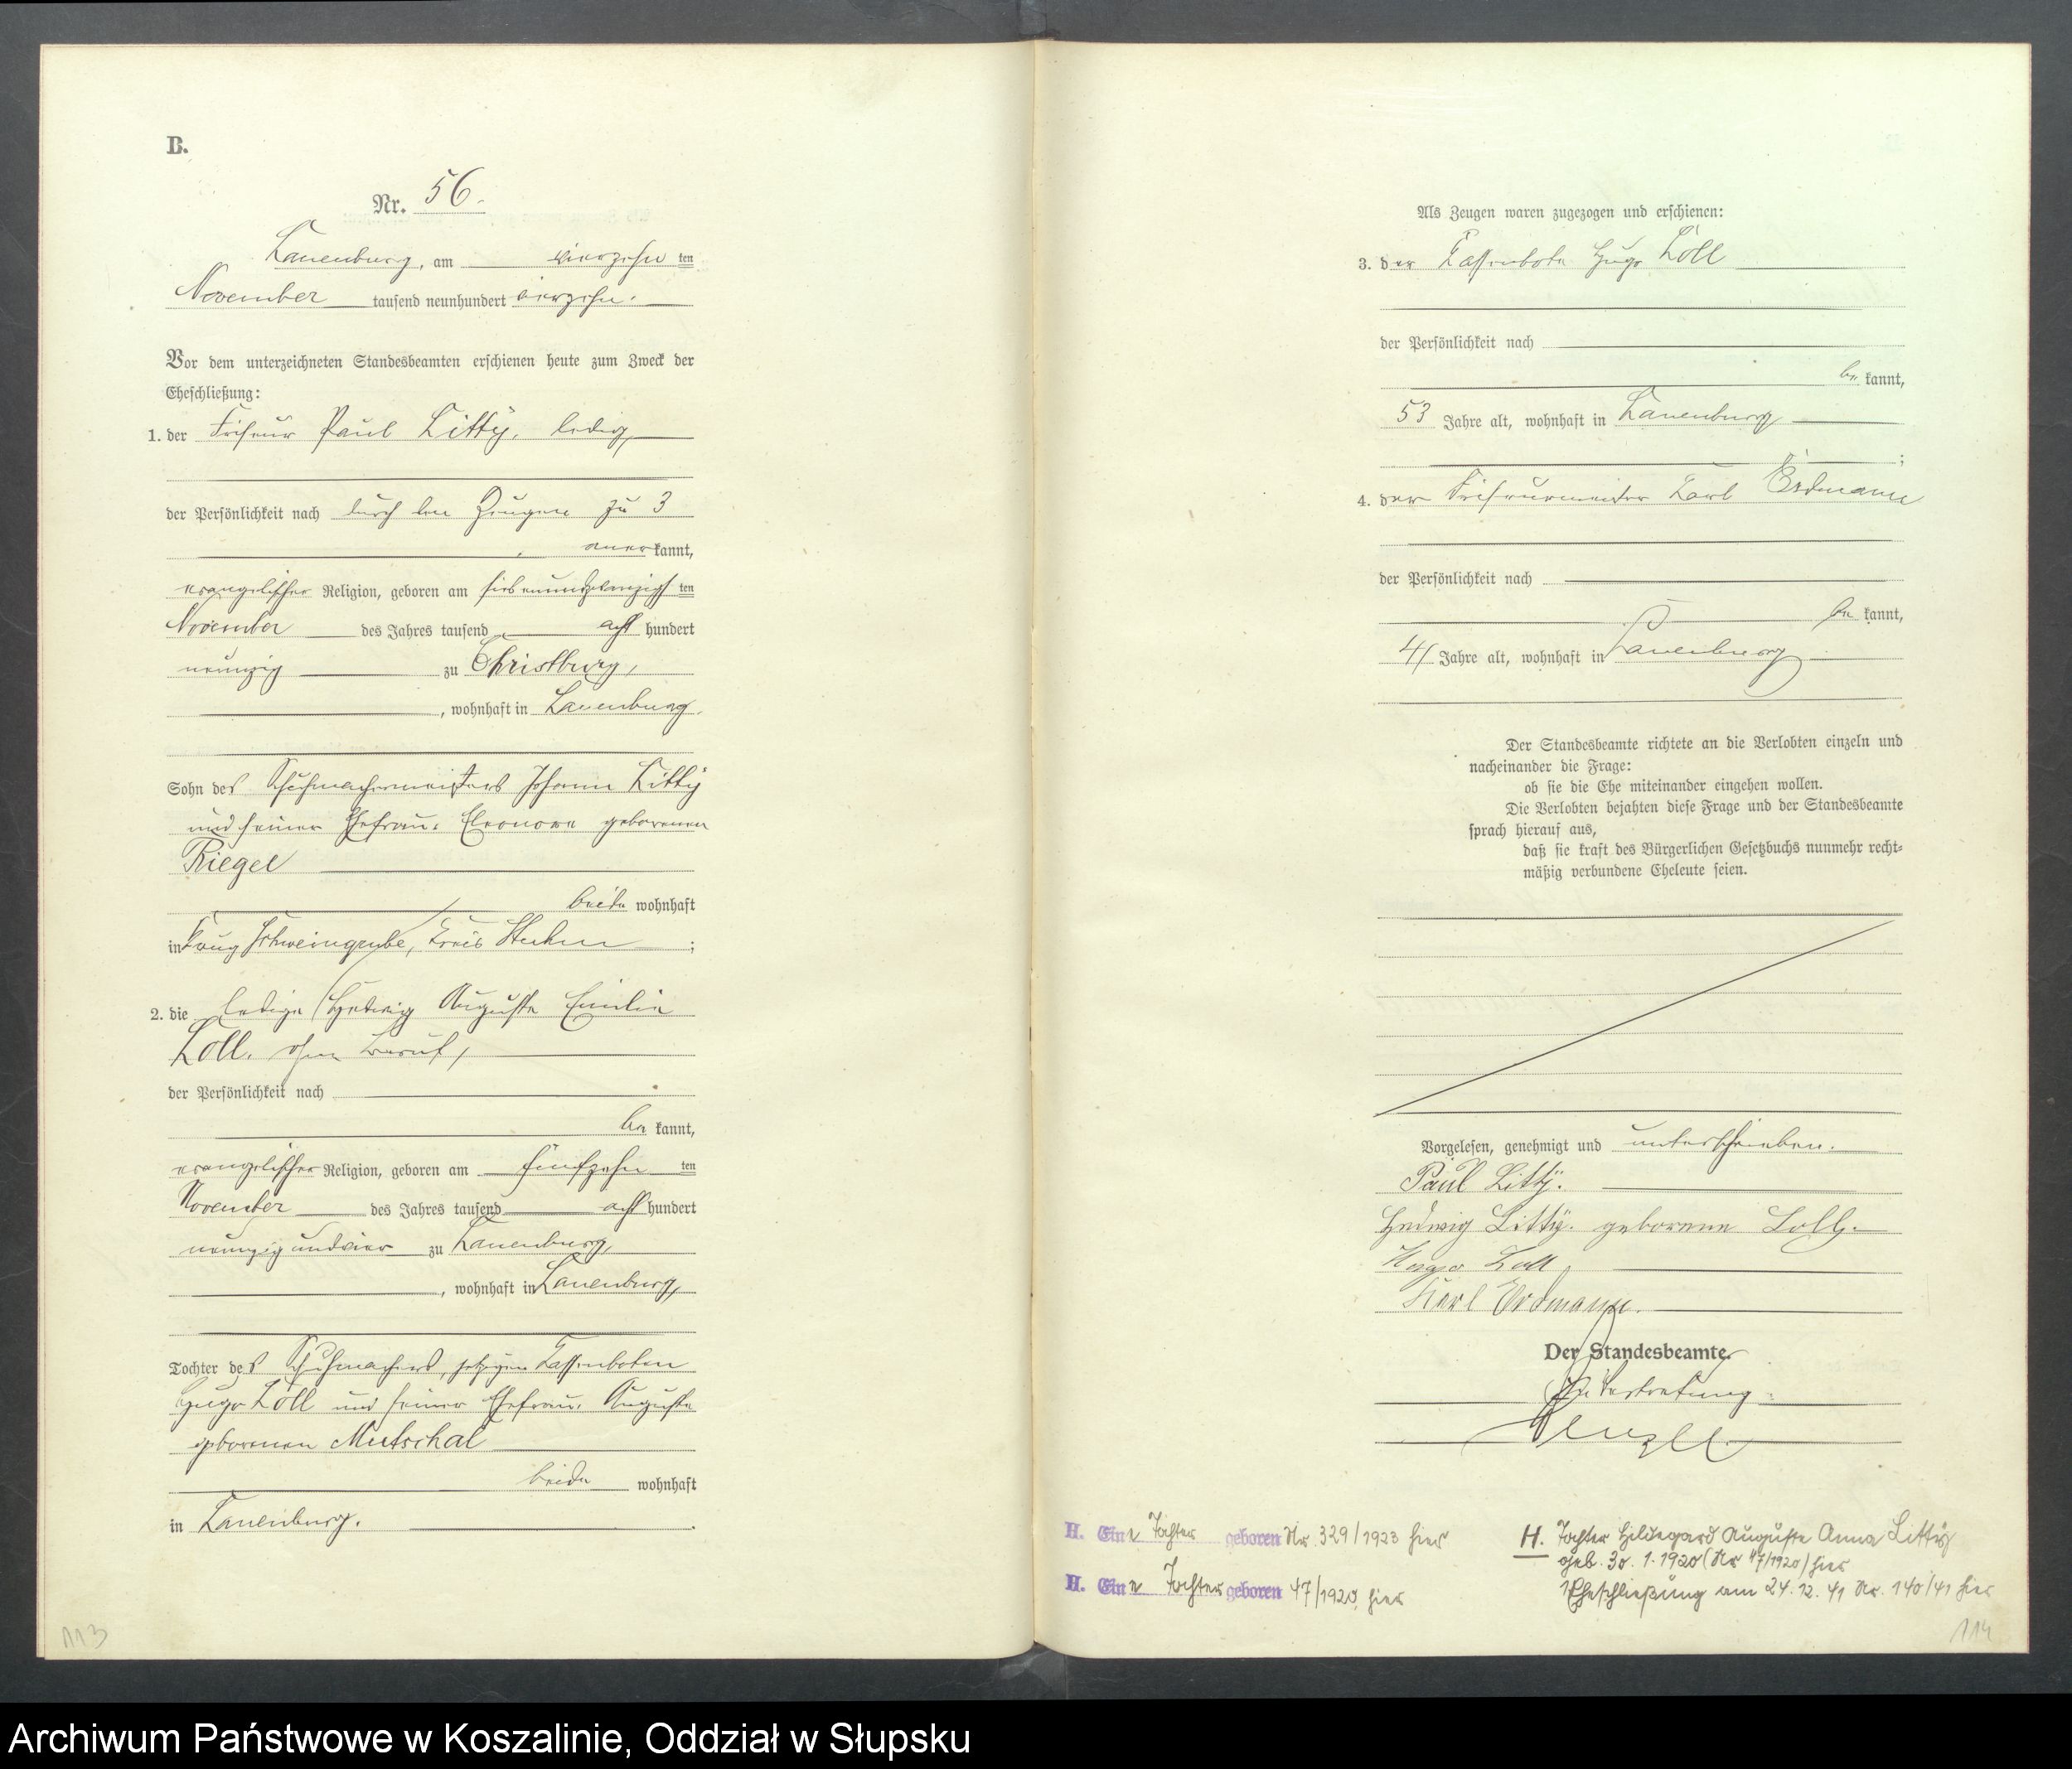 B.
Nr. 56.
Lauenburg, am vierzehn ten
November tausend neunhundert vierzehn.
Vor dem unterzeichneten Standesbeamten erschienen heute zum Zweck der
Eheschließung:
1. der Friseur Paul Litty, ledig,
der Persönlichkeit nach durch den Zeugen zu 3
anerkannt,
evangelischer Religion, geboren am siebenundzwanzigsten
November des Jahres tausend acht hundert
neunzig zu Christburg,
, wohnhaft in Lauenburg,
Sohn des Schuhmachermeisters Johann Litty
und seiner Ehefrau, Eleonore geborenen
Riegel
beide wohnhaft
in Krug Schweingrube, Kreis Stuhm ;
2. die ledige Hedwig Auguste Emilie
Loll, ohne Beruf,
der Persönlichkeit nach
be kannt,
evangelischer Religion, geboren am fünfzehn ten
November des Jahres tausend acht hundert
neunzig und vier zu Lauenburg,
, wohnhaft in Lauenburg,
Tochter des Schuhmachers, jetzigen Kassenboten
Hugo Loll und seiner Ehefrau, Auguste
geborenen Mutschal
beide wohnhaft
in Lauenburg.
113
Als Zeugen waren zugezogen und erschienen:
3. der Kassenbote Hugo Loll
der Persönlichkeit nach
be kannt,
53 Jahre alt, wohnhaft in Lauenburg
;
4. der Friseurmeister Karl Erdmann
der Persönlichkeit nach
be kannt,
41 Jahre alt, wohnhaft in Lauenburg
Der Standesbeamte richtete an die Verlobten einzeln und
nacheinander die Frage:
ob sie die Ehe miteinander eingehen wollen.
Die Verlobten bejahten diese Frage und der Standesbeamte
sprach hierauf aus,
daß sie kraft des Bürgerlichen Gesetzbuchs nunmehr recht-
mäßig verbundene Eheleute seien.
Vorgelesen, genehmigt und unterschrieben.
Paul Litty.
Hedwig Litty. geborene Loll.
Hugo Loll
Karl Erdmann.
Der Standesbeamte.
In Vertretung.
H. Eine Tochter geboren Nr. 329/1923 hier
H. Eine Tochter geboren 47/1920, hier
H. Tochter Hildegard Auguste Anna Litty
geb. 30. 1. 1920 (Nr 47/1920) hier
1. Eheschließung am 24. 12. 41 Nr. 140/41 hier
114
Archiwum Państwowe w Koszalinie, Oddział w Słupsku